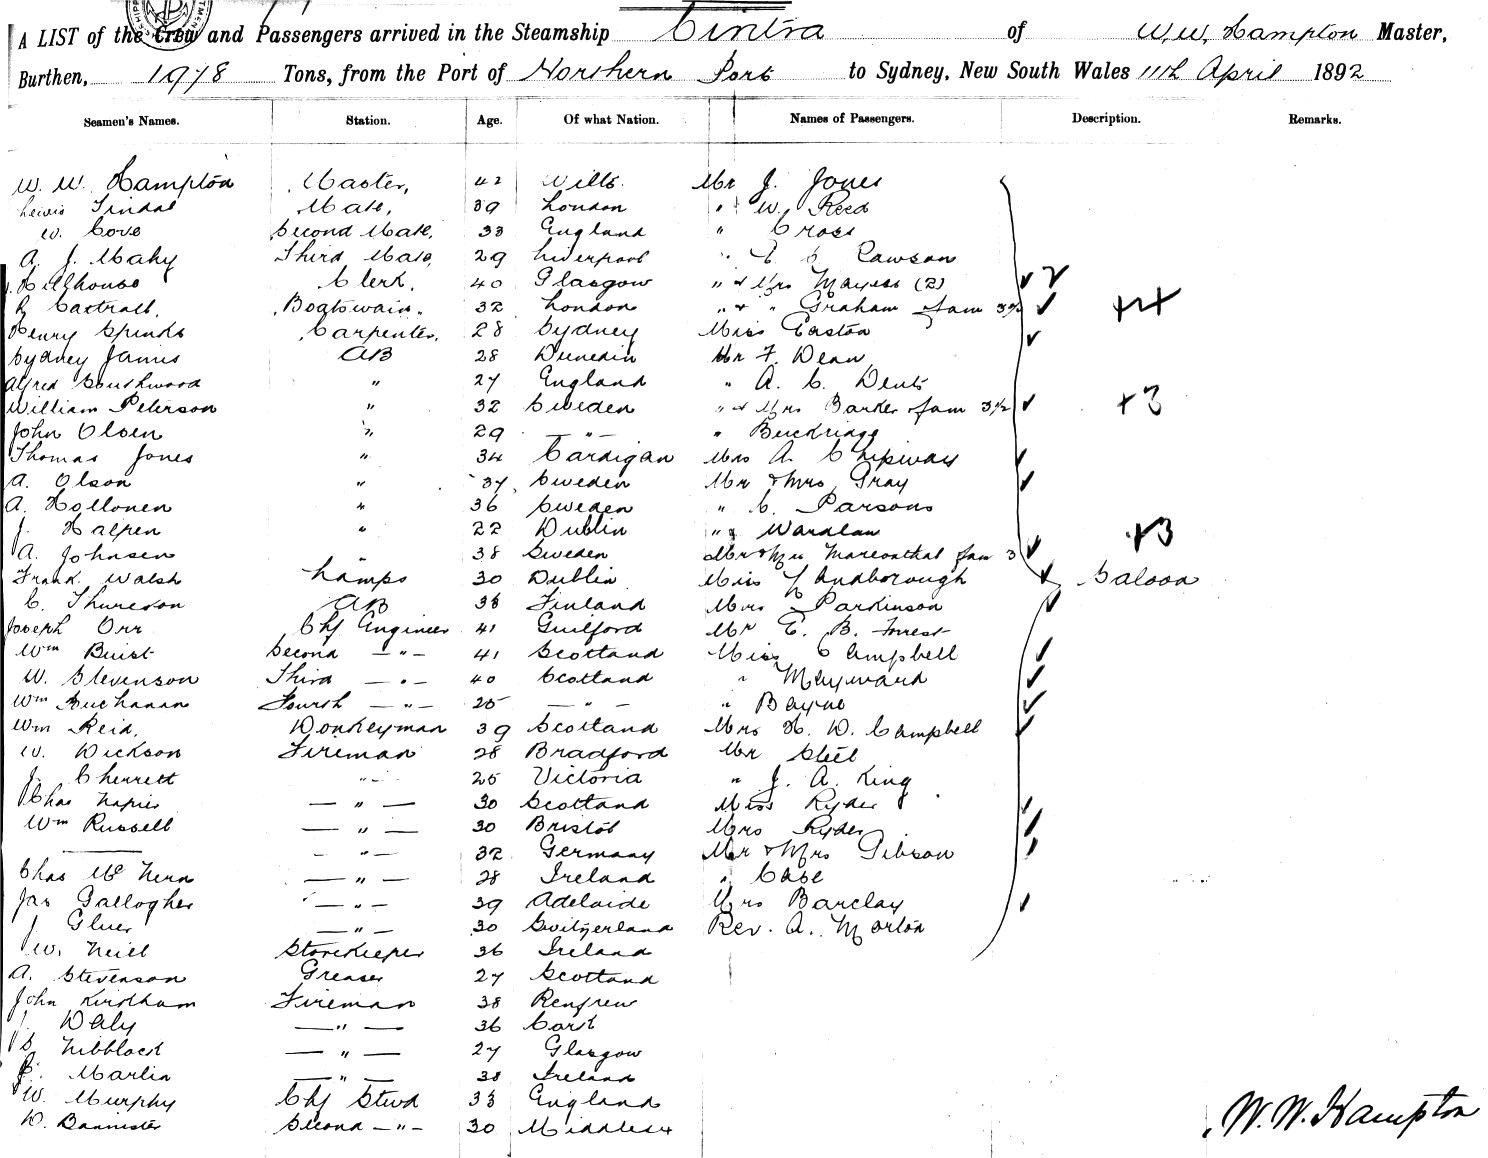 A LIST of the Crew and Passengers arrived in the Steamship Cintra of W. W. Hampton Master,
Burthen, 1978 Tons, from the Port of Northern Port to Sydney, New South Wales 11th April 1892
Seamen's Names. Station. Age. Of what Nation. Names of Passengers. Description. Remarks.
W. W. Hampton Master, 42 Wilts. Mr J. Jones
Lewis Tindal Mate, 39 London " W. Reed
W. Cove Second Mate, 33 England " Cross
A. J. Mahy Third Mate, 29 Liverpool " E C Lawson
Hillhouse Clerk, 40 Glasgow " & Mrs Mayess (2) 2
R Cartrall, Boatswain. 32 London " & " Graham & fam 3½ +4
Henry Spinks Carpenter, 28 Sydney Miss Easton
Sydney James AB 28 Dunedin Mr F. Dean
Alfred Southwood " 27 England " A. C. Dent
William Peterson " 32 Sweden " & Mrs Barker & fam 3½ +3
John Olsen " 29 — " — " Buckridge
Thomas Jones " 34 Cardigan Mrs A. Chipway
A. Olson " 37 Sweden Mr & Mrs Gray
A. Hollonen " 36 Sweden " C. Parsons
J. Halpen " 22 Dublin " Wardlaw +3
A. Johnsen " 38 Sweden Mr & Mrs fam 3
Frank Walsh Lamps 30 Dublin Miss Landborough Saloon
C. Thureson AB 38 Finland Mrs Parkinson
Joseph Orr Chf Engineer 41 Guilford Mr E. B. Forrest
Wm Buist Second — " — 41 Scotland Miss Campbell
W. Stevenson Third — " — 40 Scotland " Mayward
Wm Buchanan Fourth — " — 25 — " — " Bayne
Wm Reid, Donkeyman 39 Scotland Mrs H. D. Campbell
W. Dickson Fireman 28 Bradford Mr Steel
J. Cherrett " 25 Victoria " J. A. King
Chas Napier — " — 30 Scotland Miss Ryder
Wm Russell — " — 30 Bristol Mrs Ryder
— " — 32 Germany Mr & Mrs Gibson
Chas Mc Nern — " — 28 Ireland " Case
Jas Gallogher — " — 39 Adelaide Mrs Barclay
J Gluer — " — 30 Switzerland Rev. A. Morton
W. Neill Storekeeper 36 Ireland
A. Stevenson Greaser 27 Scotland
John Kirkham Fireman 38 Renfrew
J. Daly — " — 36 Cork
S. Nibblock — " — 27 Glasgow
P. Martin — " — 38 Ireland
W. Murphy Chf Stwd 33 England
D. Bannister Second — " — 30 Middlesex
W. W. Hampton